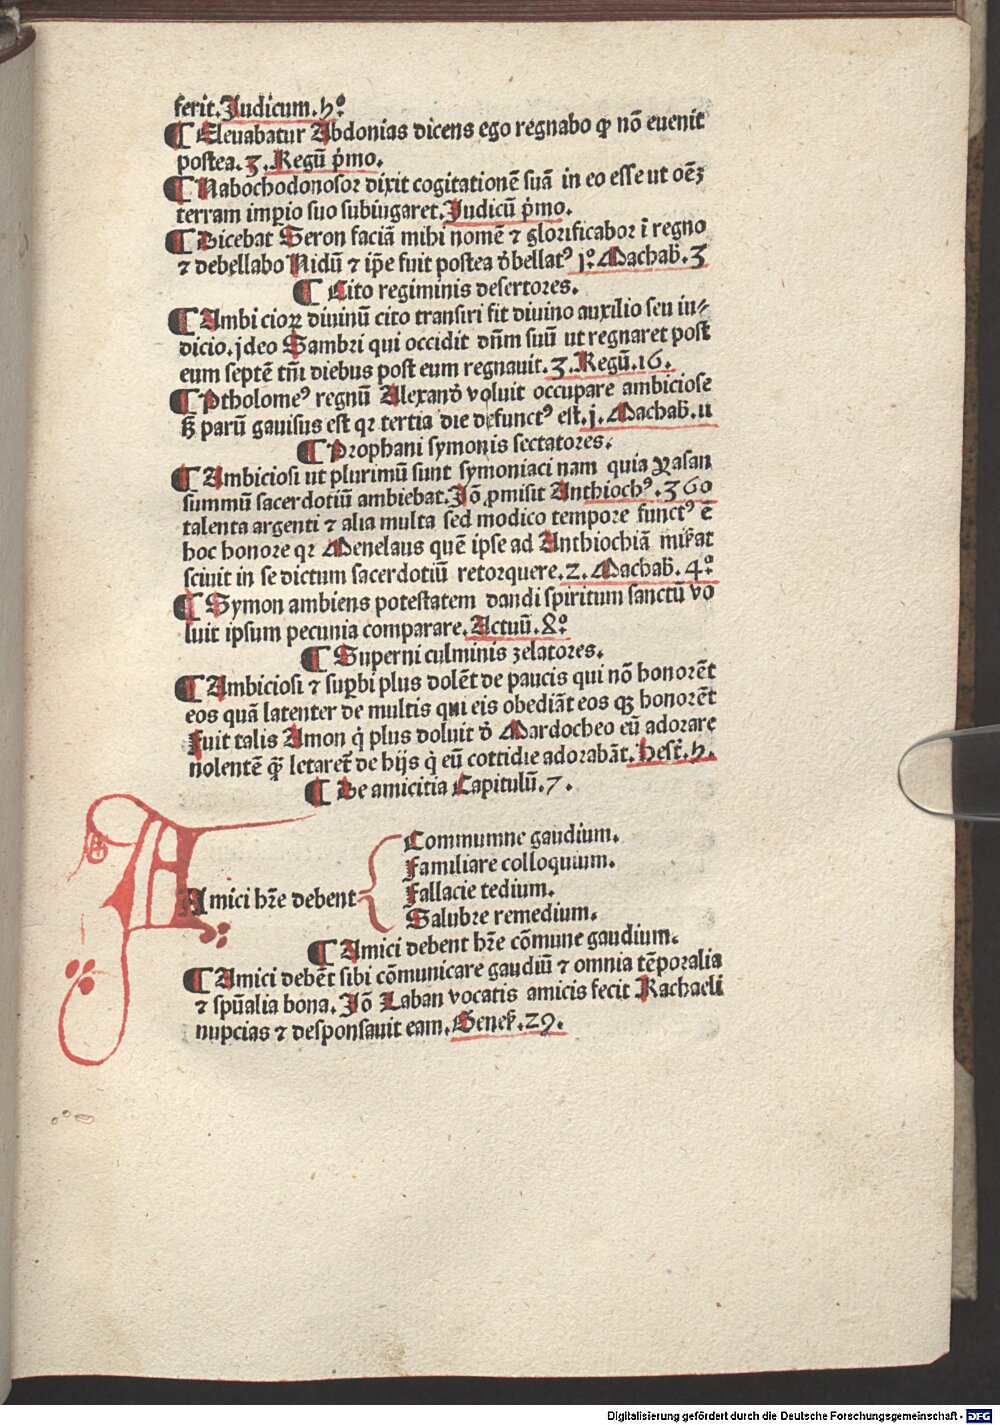 ferit. Judicum. hͦ
¶ Eleuabatur Abdonias dicens ego regnabo qꝫ nō euenit
postea. 3. Regū p̄mo.
¶ Nabochodonosor dixit cogitationē suā in eo esse ut oēꝫ
terram imꝑio suo subiugaret. Judicū p̄mo.
¶ Dicebat Seron faciā mihi nomē ⁊ glorificabor ī regno
⁊ debellabo Nidū ⁊ ip̄e fuit postea d̄bellatꝰ jͦ. Machab̄. 3
¶ Cito regiminis desertores.
¶ Ambi cioꝝ diuinū cito transiri fit diuino auxilio seu iu⸗
dicio. jdeo Sambri qui occidit dn̄m suū ut regnaret post
eum septē tm̄ diebus post eum regnauit. 3. Regū. 16.
¶ Ptholomeꝰ regnū Alexand̄ voluit occupare ambiciose
sꝫ parū gauisus est qꝛ tertia die defunctꝰ est. j. Machab̄. 11
¶ Prophani symonis sectatores.
¶ Ambiciosi ut plurimū sunt symoniaci nam quia yasan
summū sacerdotiū ambiebat. Jō ꝓmisit Anthiochꝰ. 360
talenta argenti ⁊ alia multa sed modico tempore functꝰ ē
hoc honore qꝛ Menelaus quē ipse ad Anthiochiā mis̄at
sciuit in se dictum sacerdotiū retorquere. 2. Machab̄. 4ͦ
¶ Symon ambiens potestatem dandi spiritum sanctū vo
luit ipsum pecunia comparare. Actuū. 8ͦ
¶ Superni culminis zelatores.
¶ Ambiciosi ⁊ suꝑbi plus dolēt de paucis qui nō honorēt
eos quā latenter de multis qui eis obediāt eos qꝫ honorēt
fuit talis Amon q̇ plus doluit d̄ Mardocheo eū adorare
nolentē qꝫ̄ letaret̄ de hijs q̇ eū cottidie adorabāt. hest̄. h.
¶ De amicitia Capitulū. 7.
Amici hr̄e debent
Commumne gaudium.
Familiare colloquium.
Fallacie tedium.
Salubre remedium.
¶ Amici debent hr̄e cōmune gaudium.
¶ Amici debēt sibi cōmunicare gaudiū ⁊ omnia tēporalia
⁊ spūalia bona. Jō Laban vocatis amicis fecit Rachaeli
nupcias ⁊ desponsauit eam. Genes̄. 29.
Digitalisierung gefördert durch die Deutsche Forschungsgemeinschaft - DFG